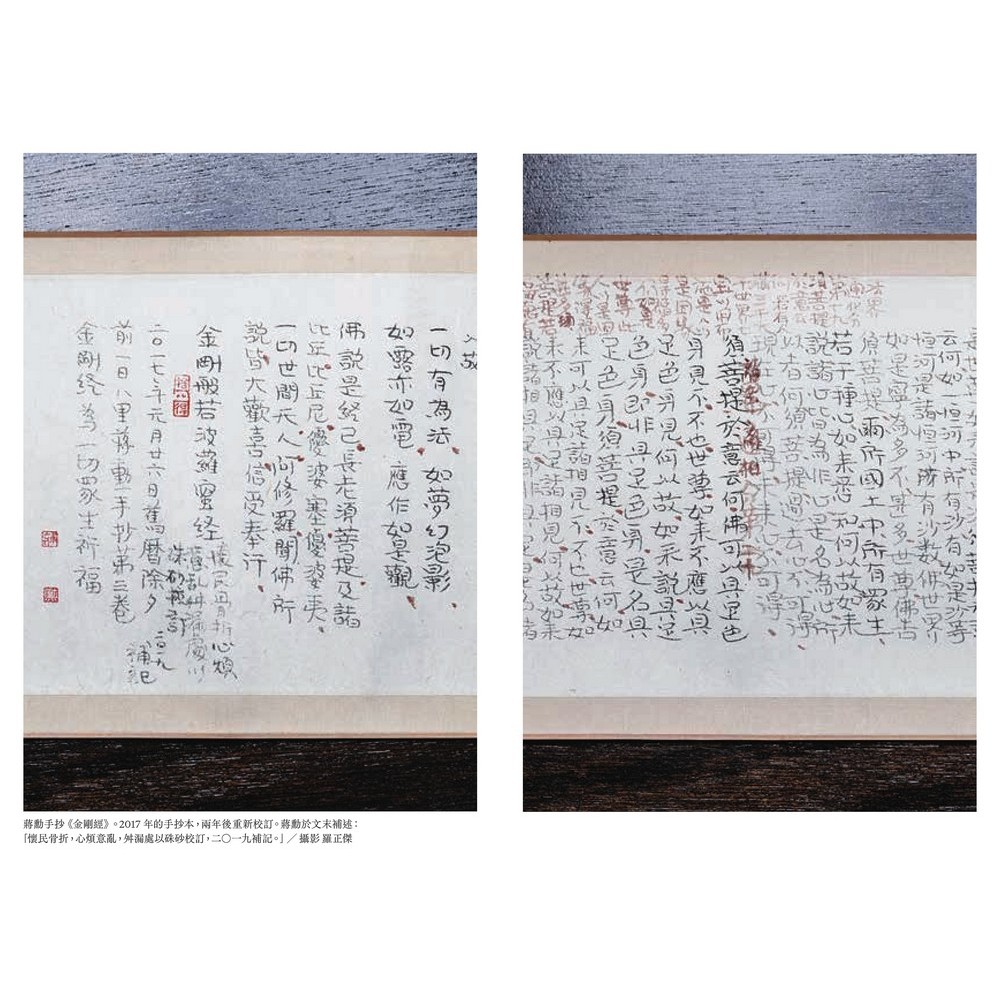 法界
通化分
須菩提
於意云
何若有人
滿三千大
千世界七
寶以用布
施是人以
是因緣
得福多不
如是
世尊此
人以是因
緣得福
甚多須
菩提若
云何如一恒河中所有沙有如是沙等
恒河是諸恒河所有沙數佛世界
如是寧為多不甚多世尊佛告
須菩提爾所國土中所有眾生
若干種心如來悉知何以故如來
說諸心皆為非心是名為心所
以者何須菩提過去心不可得
現在心不可得未來心不可得
須菩提於意云何佛可以具足色
身見不不也世尊如來不應以具
足色身見何以故如來說具足
色身即非具足色身是名具
足色身須菩提於意云何如
來可以具足諸相見不不也世尊如
來不應以具足諸相見何以故如來
說諸相具足
一切有為法 如夢幻泡影
如露亦如電 應作如是觀
佛說是經已長老須菩提及諸
比丘比丘尼優婆塞優婆夷
一切世間天人阿修羅聞佛所
說皆大歡喜信受奉行
金剛般若波羅蜜經
懷民骨折心煩
意亂舛漏處以
硃砂校訂
二〇一九
補記
二〇一七年元月廿六日舊曆除夕
前一日八里蔣勳手抄第三卷
金剛經 為一切眾生祈福
蔣勳手抄《金剛經》。2017 年的手抄本，兩年後重新校訂。蔣勳於文末補述：
「懷民骨折，心煩意亂，舛漏處以硃砂校訂，二〇一九補記。」／攝影 羅正傑